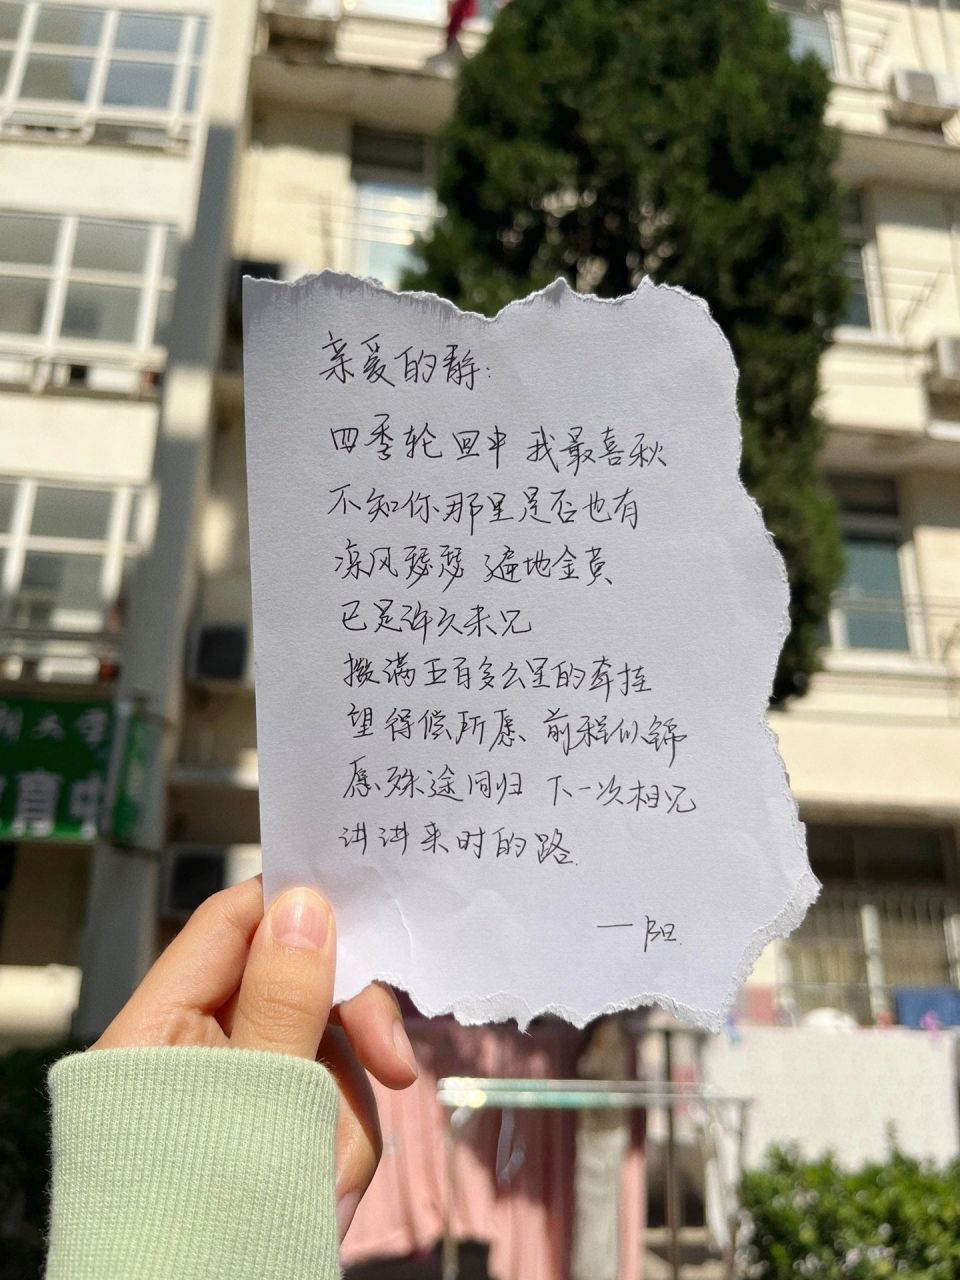 亲爱的静：
四季轮回中 我最喜秋
不知你那里是否也有
凉风瑟瑟 遍地金黄
已是许久未见
攒满五百多公里的牵挂
望得偿所愿 前程似锦
愿殊途同归 下一次相见
讲讲来时的路.
一阳.
大学
育中